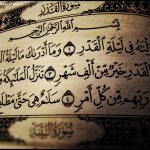 سُورَةُ القَدْرِ
بِسْمِ اللَّهِ الرَّحْمَٰنِ الرَّحِيمِ
فِي لَيْلَةِ الْقَدْرِ ١ وَمَا أَدْرَىٰكَ مَا لَيْلَةُ
الْقَدْرِ خَيْرٌ مِّنْ أَلْفِ شَهْرٍ ٣ تَنَزَّلُ الْمَلَٰٓئِكَةُ
رَبِّهِم مِّن كُلِّ أَمْرٍ ٤ سَلَٰمٌ هِيَ حَتَّىٰ مَطْلَعِ
سُورَةُ البَيِّنَةِ